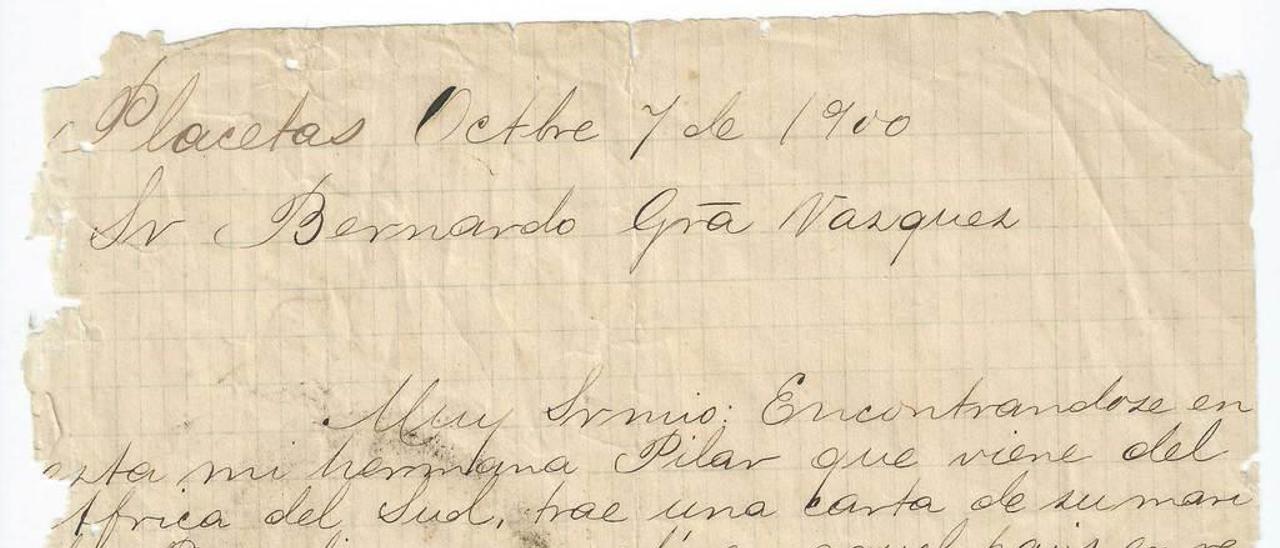 Placetas Octbre 7 de 1900
Sr Bernardo Grā Vazquez
Muy Srmio: Encontrandose en
esta mi hermana Pilar que viene del
Africa del Sud, trae una carta de su mari